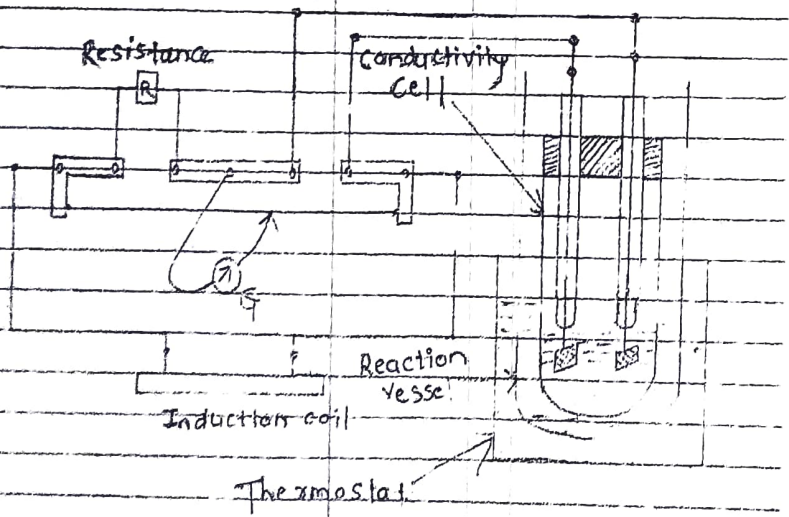 Resistance
R
Conductivity
Cell
G
Reaction
Vesse
Induction coil
Thermostat